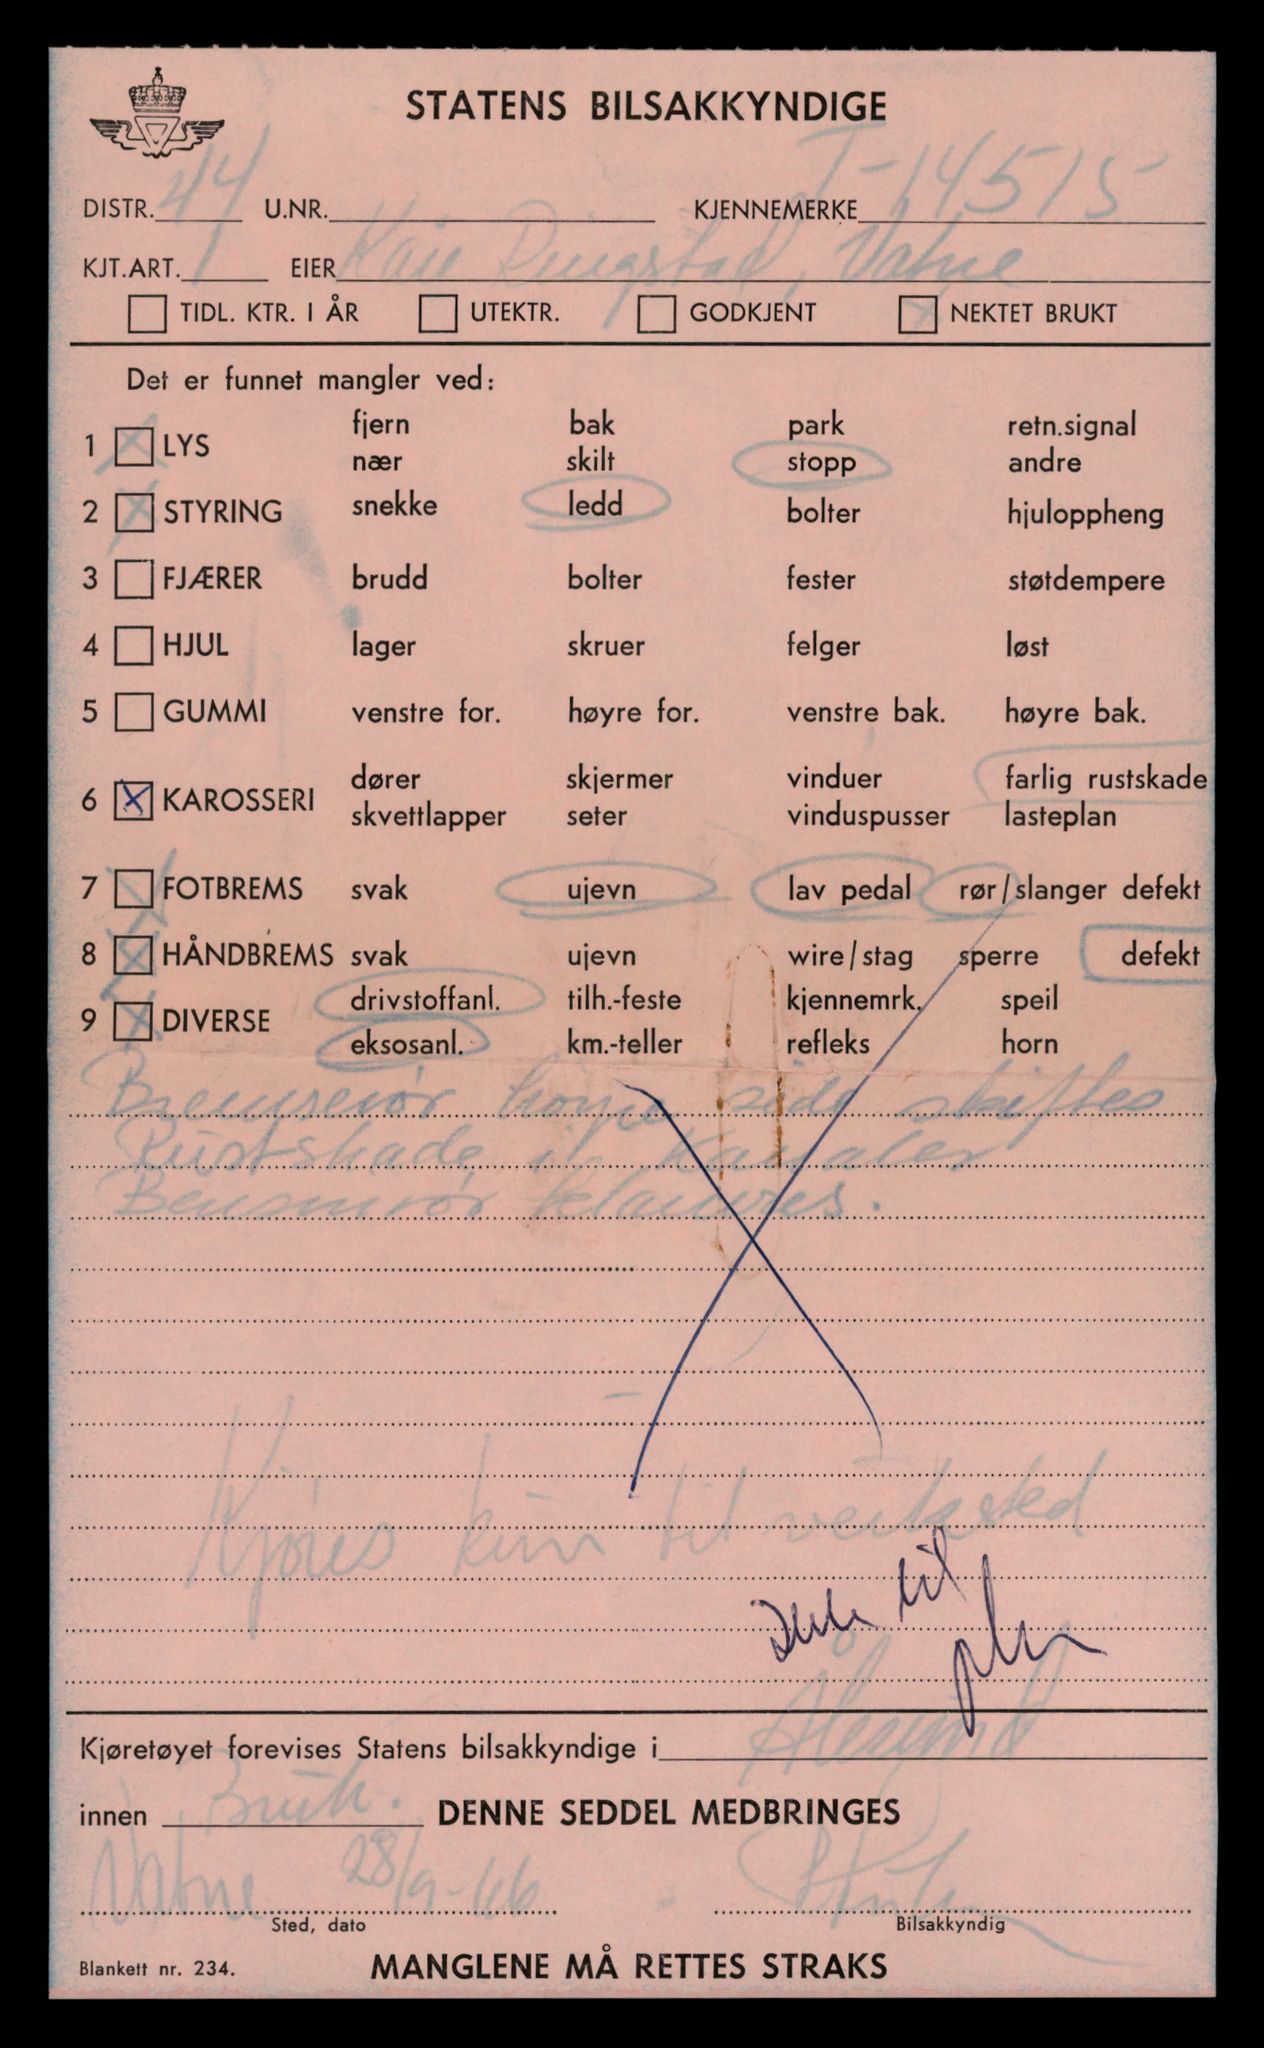 STATENS BILSAKKYNDIGE
DISTR. 44 U.NR. KJENNEMERKE T-14515
KJT.ART. 1 EIER Kåre Ringstad, Vatne
TIDL. KTR. I ÅR UTEKTR. GODKJENT NEKTET BRUKT
Det er funnet mangler ved:
fjern bak park retn.signal
1 LYS
nær skilt stopp andre
2 STYRING snekke ledd bolter hjuloppheng
3 FJÆRER brudd bolter fester støtdempere
4 HJUL lager skruer felger løst
5 GUMMI venstre for. høyre for. venstre bak. høyre bak.
dører skjermer vinduer farlig rustskade
6 KAROSSERI
skvettlapper seter vinduspusser lasteplan
7 FOTBREMS svak ujevn lav pedal rør/slanger defekt
8 HÅNDBREMS svak ujevn wire/stag sperre defekt
drivstoffanl. tilh.-feste kjennemrk. speil
9 DIVERSE
eksosanl. km.-teller refleks horn
Bremserør høyre side skiftes
Rustskade i kanaler
Bensinrør klamres.
Kjøres kun til verksted
til
Kjøretøyet forevises Statens bilsakkyndige i Ålesund
innen Bruk. DENNE SEDDEL MEDBRINGES
Vatne 28/9-66
Sted, dato Bilsakkyndig
Blankett nr. 234. MANGLENE MÅ RETTES STRAKS